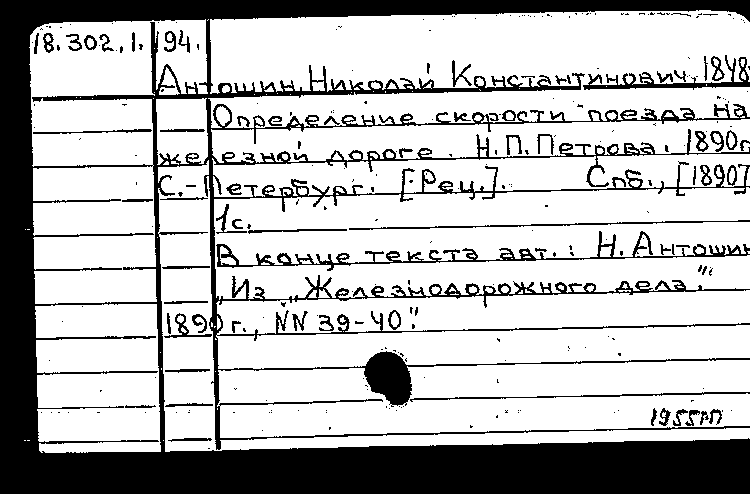 18.302.1.194.
Антошин, Николай Константинович, 1848-
Определение скорости поезда на
железной дороге. Н.П.Петрова. 1890г.
С.-Петербург. [Рец.]. Спб., [1890]
1с.
В конце текста авт.: Н.Антошин
„Из „Железнодорожного дела"."
1890 г., NN 39-40."